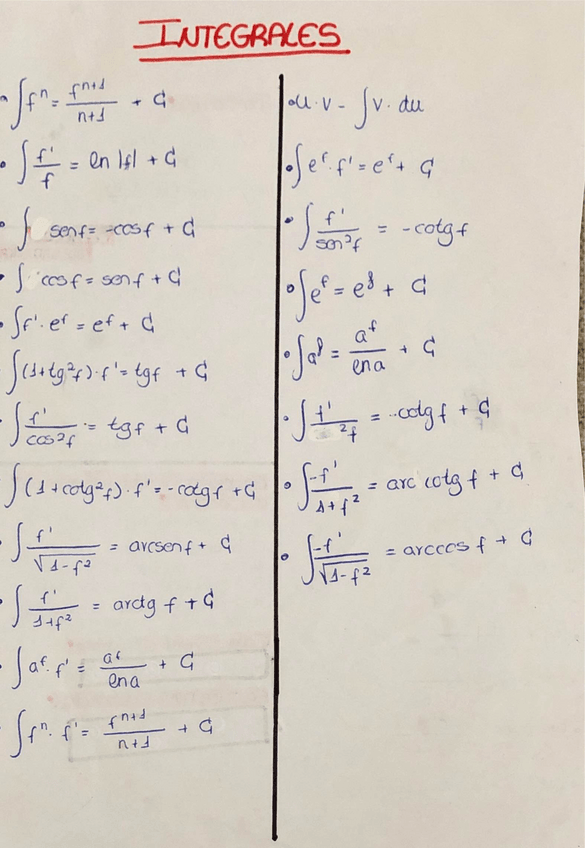 INTEGRALES
∫fⁿ = fⁿ⁺¹/n+1 + C
∫f'/f = ln |f| + C
∫ senf = -cosf + C
∫ cosf = senf + C
∫f'·eᶠ = eᶠ + C
∫(1+tg²f)·f' = tgf + C
∫f'/cos²f = tgf + C
∫(1+cotg²f)·f' = -cotgf + C
∫f'/√1-f² = arcsenf + C
∫f'/1+f² = arctg f + C
∫aᶠ·f' = aᶠ/lna + C
∫fⁿ·f' = fⁿ⁺¹/n+1 + C
u·v - ∫v·du
∫eᶠ·f' = eᶠ + C
∫f'/sen²f = -cotgf
∫eᶠ = eᶠ + C
∫aᶠ = aᶠ/lna + C
∫f'/²f = -cotgf + C
∫-f'/1+f² = arc cotg f + C
∫-f'/√1-f² = arccos f + C